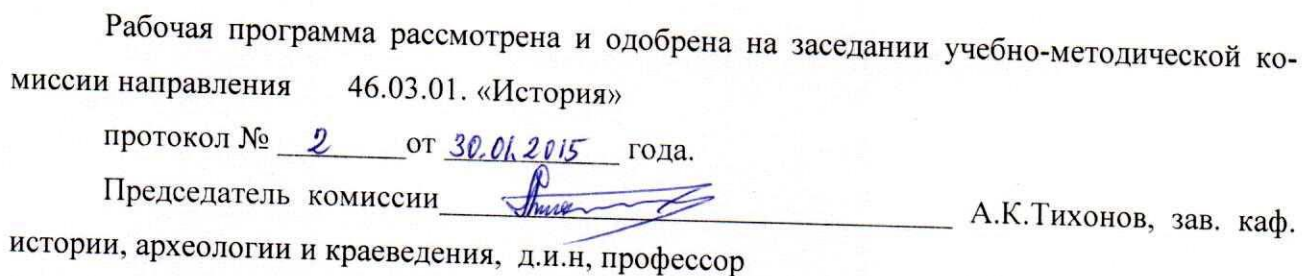 Рабочая программа рассмотрена и одобрена на заседании учебно-методической ко-
миссии направления 46.03.01. «История»
протокол № 2 от 30.01.2015 года.
Председатель комиссии А.К.Тихонов, зав. каф.
истории, археологии и краеведения, д.и.н, профессор